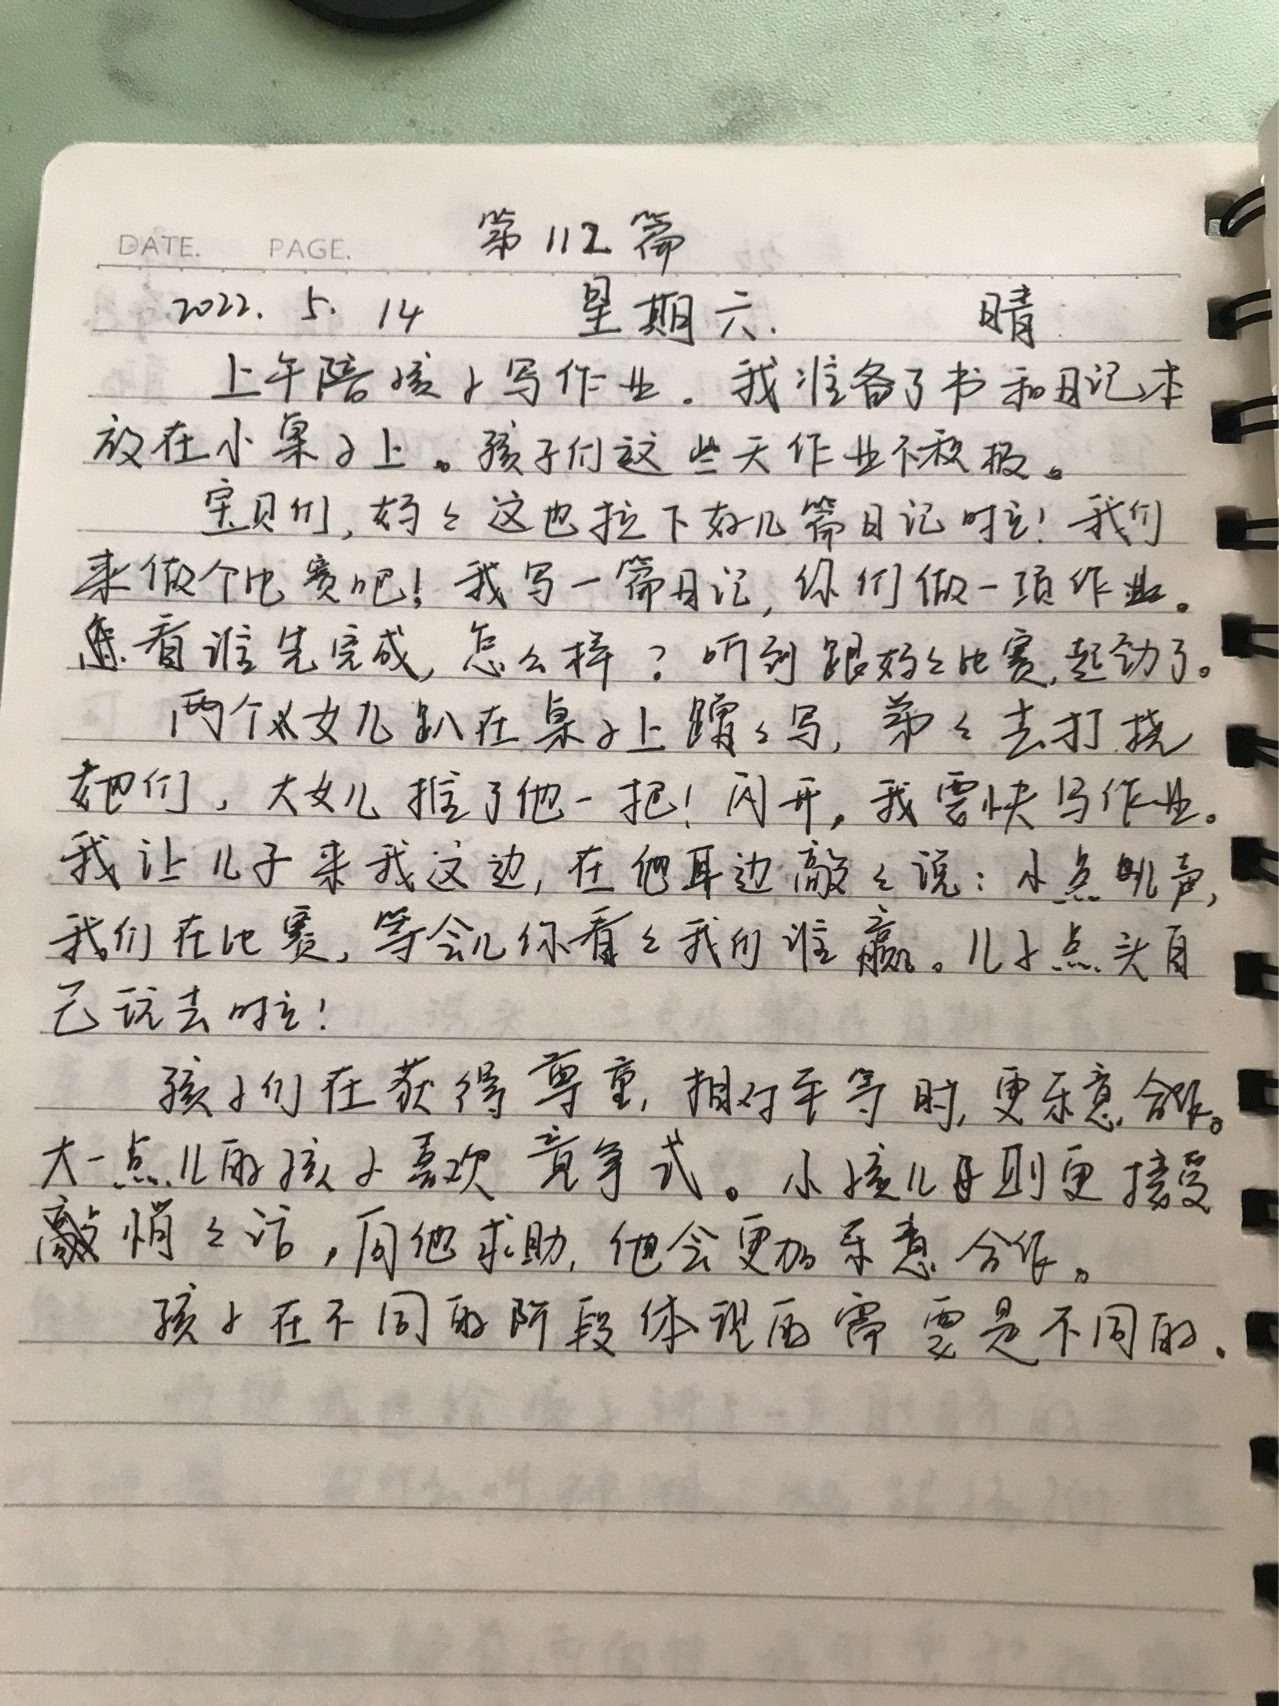 DATE. PAGE. 第112篇
2022. 5. 14 星期六. 晴
上午陪孩子写作业。我准备了书和日记本
放在小桌子上。孩子们这些天作业不积极。
宝贝们,妈妈这也拉下好几篇日记啦!我们
来做个比赛吧!我写一篇日记,你们做一项作业。
看谁先完成,怎么样?听到跟妈妈比赛,起劲了。
两个女儿趴在桌子上蹭蹭写,弟弟去打挠
她们,大女儿推了他一把!闪开,我要快写作业。
我让儿子来我这边,在他耳边敲敲说:小点儿声,
我们在比赛,等会儿你看看我们谁赢。儿子点头自
己玩去啦!
孩子们在获得尊重,相对平等时,更乐意合作。
大一点儿的孩子喜欢竞争式。小孩儿则更接受
悄悄话,向他求助,他会更加乐意合作。
孩子在不同的阶段体现的需要是不同的.